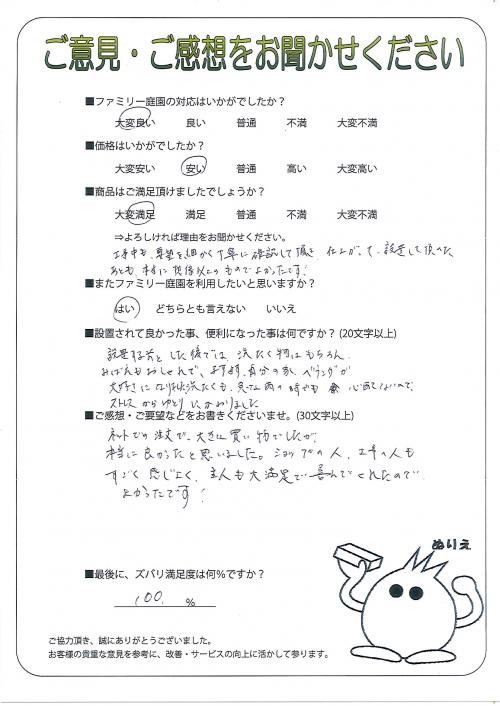 ご意見・ご感想をお聞かせください
■ファミリー庭園の対応はいかがでしたか？
大変良い 良い 普通 不満 大変不満
■価格はいかがでしたか？
大変安い 安い 普通 高い 大変高い
■商品はご満足頂けましたでしょうか？
大変満足 満足 普通 不満 大変不満
⇒よろしければ理由をお聞かせください。
工事中も、要望を細かく丁寧に確認して頂き、仕上がって、設置して頂いた
あとも、本当に 以上の ものでよかったです！
■またファミリー庭園を利用したいと思いますか？
はい どちらとも言えない いいえ
■設置されて良かった事、便利になった事は何ですか？(20文字以上)
設置する前とした後では、洗たく物はもちろん、
おしゃれで、ますます、自分の家、ベランダが
大好きになり 洗たくも、急な雨の時も 心配ないので、
ストレスからゆとりにかわりました
■ご感想・ご要望などをお書きくださいませ。(30文字以上)
ネットでの注文で、大きな買い物でしたが、
本当に良かったと思いました。ショップの人、工事の人も
すごく感じよく、主人も大満足で喜んでくれたので
よかったです！
■最後に、ズバリ満足度は何％ですか？
100. ％
ぬりえ
ご協力頂き、誠にありがとうございました。
お客様の貴重な意見を参考に、改善・サービスの向上に活かして参ります。